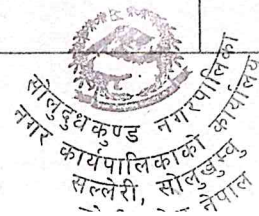 सोलुदुधकुण्ड नगरपालिका
नगर कार्यपालिकाको कार्यालय
सल्लेरी, सोलुखुम्बु
नेपाल